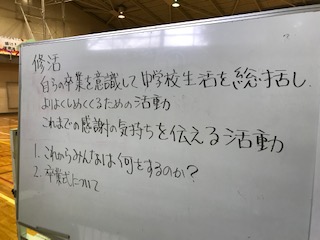 修活
自らの卒業を意識して中学校生活を総括し、
よりよくしめくくるための活動
これまでの感謝の気持ちを伝える活動
1. これからみんなは何をするのか?
2. 卒業式について